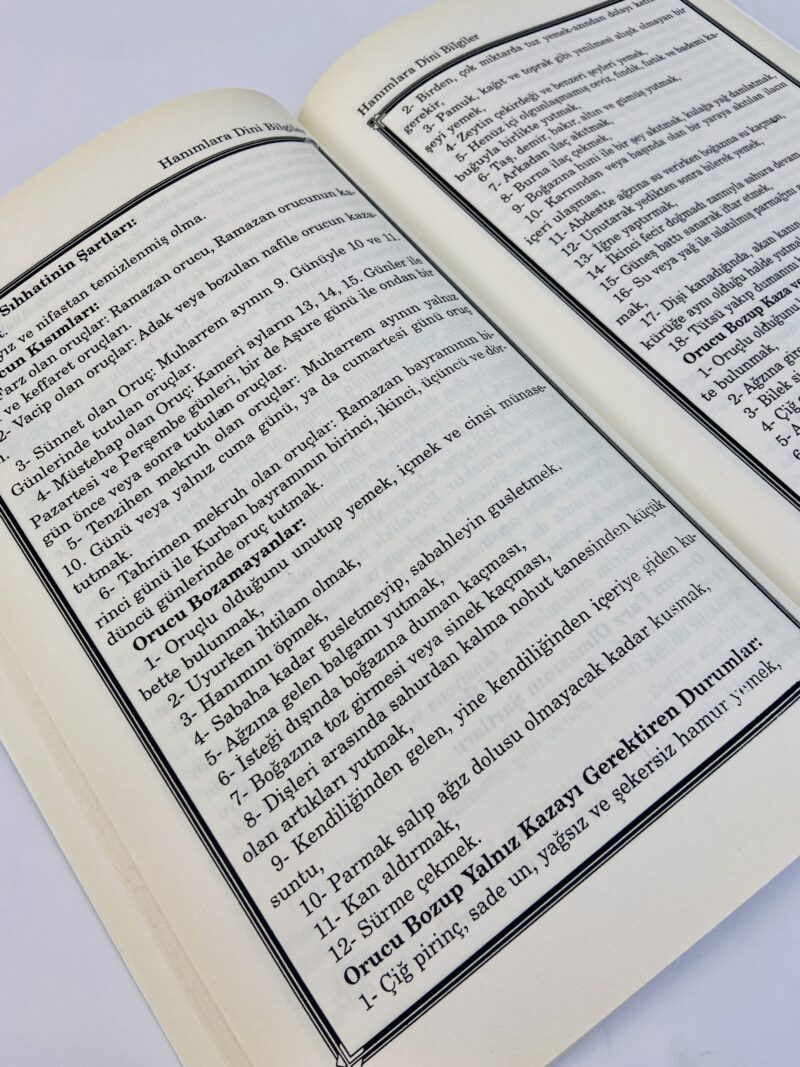 Hanımlara Dini Bilgiler
Sıhhatinin Şartları:
ve nifastan temizlenmiş olma.
Kısımları:
olan oruçlar: Ramazan orucu, Ramazan orucunun ka-
ve keffaret oruçları.
2- Vacip olan oruçlar: Adak veya bozulan nafile orucun kaza-
3- Sünnet olan Oruç: Muharrem ayının 9. Günüyle 10 ve 11.
Günlerinde tutulan oruçlar.
4- Müstehap olan Oruç: Kameri ayların 13, 14, 15. Günler ile
Pazartesi ve Perşembe günleri, bir de Aşure günü ile ondan bir
gün önce veya sonra tutulan oruçlar.
5- Tenzihen mekruh olan oruçlar: Muharrem ayının yalnız
10. Günü veya yalnız cuma günü, ya da cumartesi günü oruç
tutmak.
6- Tahrimen mekruh olan oruçlar: Ramazan bayramının bi-
rinci günü ile Kurban bayramının birinci, ikinci, üçüncü ve dör-
düncü günlerinde oruç tutmak.
Orucu Bozamayanlar:
1- Oruçlu olduğunu unutup yemek, içmek ve cinsi münase-
bette bulunmak,
2- Uyurken ihtilam olmak,
3- Hanımını öpmek,
4- Sabaha kadar gusletmeyip, sabahleyin gusletmek.
5- Ağzına gelen balgamı yutmak,
6- İsteği dışında boğazına duman kaçması,
7- Boğazına toz girmesi veya sinek kaçması,
8- Dişleri arasında sahurdan kalma nohut tanesinden küçük
olan artıkları yutmak,
9- Kendiliğinden gelen, yine kendiliğinden içeriye giden ku-
suntu,
10- Parmak salıp ağız dolusu olmayacak kadar kusmak,
11- Kan aldırmak,
12- Sürme çekmek.
Orucu Bozup Yalnız Kazayı Gerektiren Durumlar:
1- Çiğ pirinç, sade un, yağsız ve şekersiz hamur yemek,
Hanımlara Dini Bilgiler
2- Birden, çok miktarda tuz yemek-azından dolayı
gerekir,
3- Pamuk, kağıt ve toprak gibi yenilmesi alışık olmayan bir
şeyi yemek,
4- Zeytin çekirdeği ve benzeri şeyleri yemek,
5- Henüz içi olgunlaşmamış ceviz, fındık, fıstık ve bademi ka-
buğuyla birlikte yutmak,
6- Taş, demir, bakır, altın ve gümüş yutmak,
7- Arkadan ilaç akıtmak,
8- Burna ilaç çekmek,
9- Boğazına huni ile bir şey akıtmak, kulağa yağ damlatmak,
10- Karnından veya başında olan bir yaraya akıtılan ilacın
içeri ulaşması,
11- Abdestte ağzına su verirken boğazına su kaçması,
12- Unutarak yedikten sonra bilerek yemek,
13- İğne yaptırmak,
14- İkinci fecir doğmadı zannıyla sahura devam
15- Güneş battı sanarak iftar etmek
16- Su veya yağ ile ıslatılmış parmağını
mak,
17- Dişi kanadığında, akan kanın
kürüğe aynı olduğu halde yutmak
18- Tütsü yakıp dumanını
Orucu Bozup Kaza ve
1- Oruçlu olduğunu
te bulunmak,
2- Ağzına
3- Bilek
4- Çiğ
5-